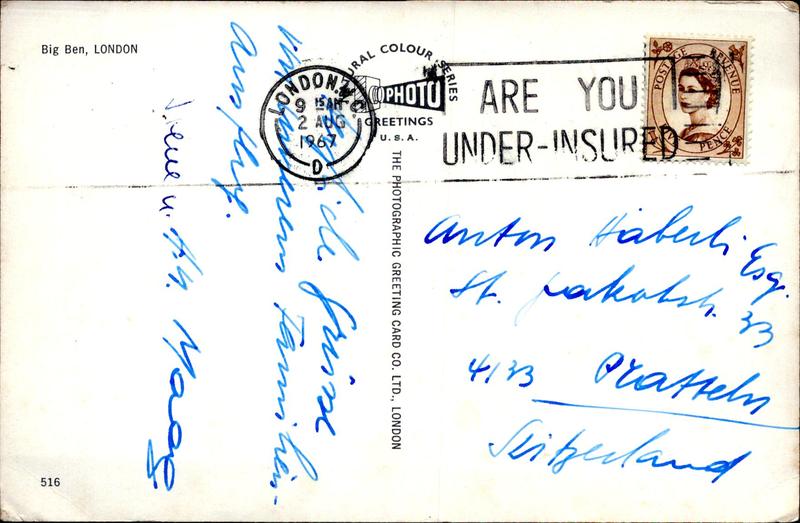 Big Ben, LONDON
NATURAL COLOUR SERIES
PHOTO
GREETINGS
U.S.A.
LONDON. W.C.
9 15AM
2 AUG
1967
D
ARE YOU
UNDER-INSURED
POSTAGE REVENUE
PENCE
Herzliche Grüsse
von unserem Familien-
Ausflug.
u. Hch. Maag
THE PHOTOGRAPHIC GREETING CARD CO. LTD., LONDON
Anton Häberli Esq.
St. Jakobstr. 33
4133 Pratteln
Switzerland
516